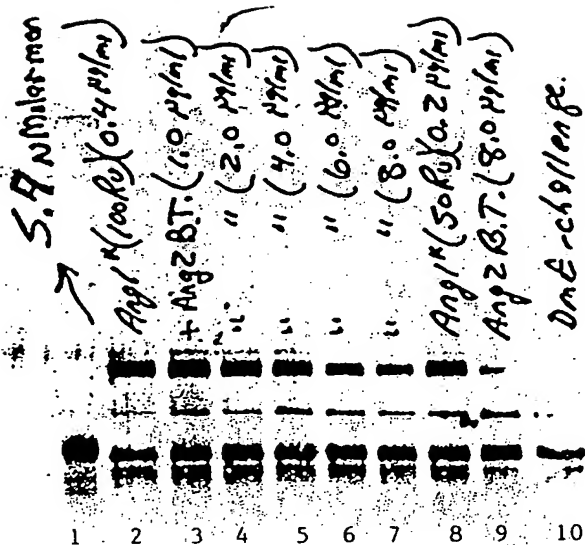 Ang1* (100 RU)(0.4 µg/ml)
+ Ang2 B.T. (1.0 µg/ml)
" " (2.0 µg/ml)
" " (4.0 µg/ml)
" " (6.0 µg/ml)
" " (8.0 µg/ml)
Ang1* (50 RU)(0.2 µg/ml)
Ang2 B.T. (8.0 µg/ml)
challenge.
1 2 3 4 5 6 7 8 9 10